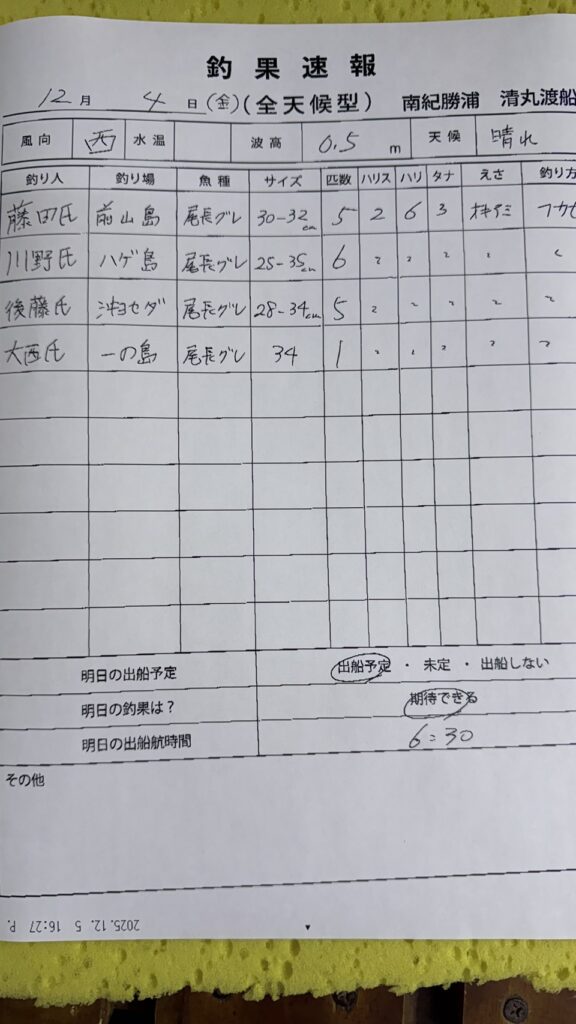 釣果速報
12月 4日(金)(全天候型) 南紀勝浦 清丸渡船
風向 西 水温 波高 0.5 m 天候 晴れ
釣り人 釣り場 魚種 サイズ 匹数 ハリス ハリ タナ えさ 釣り方
藤田氏 前山島 尾長グレ 30-32cm 5 2 6 3 オキアミ フカセ
川野氏 ハゲ島 尾長グレ 25-35cm 6 〃 〃 〃 〃 〃
後藤氏 沖ヨセダ 尾長グレ 28-34cm 5 〃 〃 〃 〃 〃
大西氏 一の島 尾長グレ 34 1 〃 〃 〃 〃 〃
明日の出船予定 出船予定 ・ 未定 ・ 出船しない
明日の釣果は? 期待できる
明日の出船航時間 6:30
その他
2025.12. 5 16:27 P.